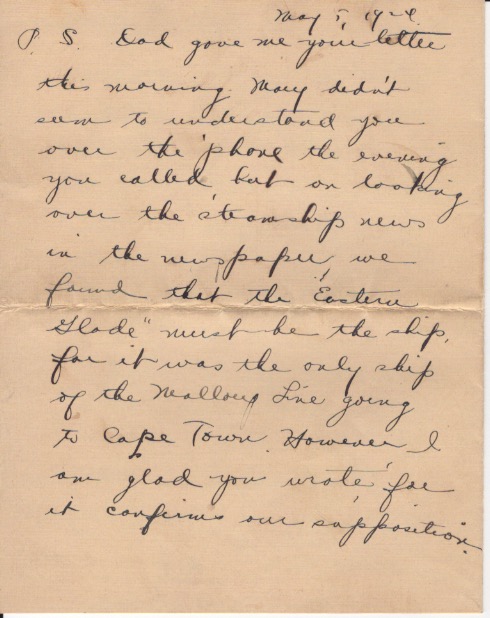 May 5, 1924.
P. S. Dad gave me your letter
this morning. Mary didn't
seem to understand you
over the 'phone the evening
you called but on looking
over the steamship news
in the newspaper, we
found that the "Eastern
Glade" must be the ship,
for it was the only ship
of the Mallory Line going
to Cape Town. However I
am glad you wrote for
it confirms our supposition.